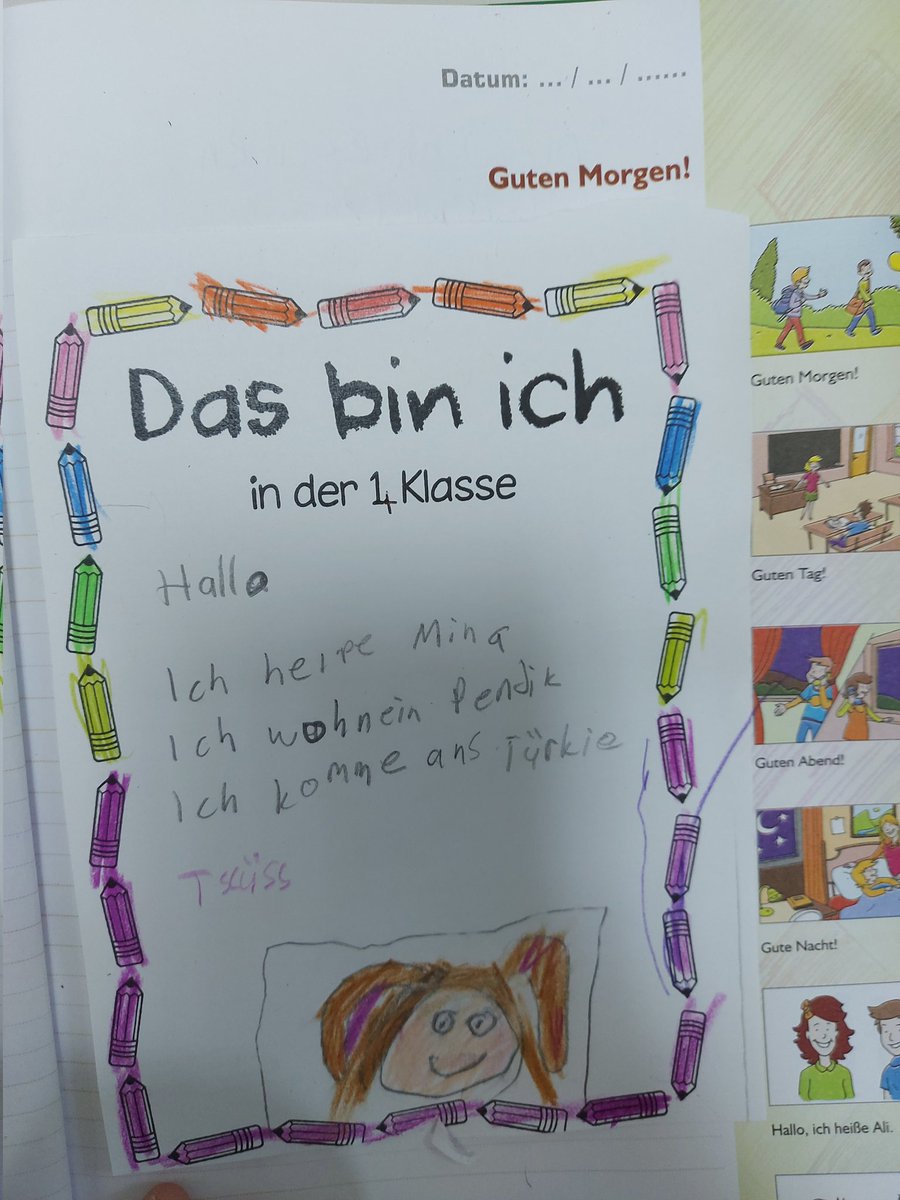 Datum: ... / ... / ......
Guten Morgen!
Das bin ich
in der 1. Klasse
Hallo
Ich heipe Mina
Ich wohnein Pendik
Ich komme ans Türkie
Tscüss
Guten Morgen!
Guten Tag!
Guten Abend!
Gute Nacht!
Hallo, ich heiße Ali.